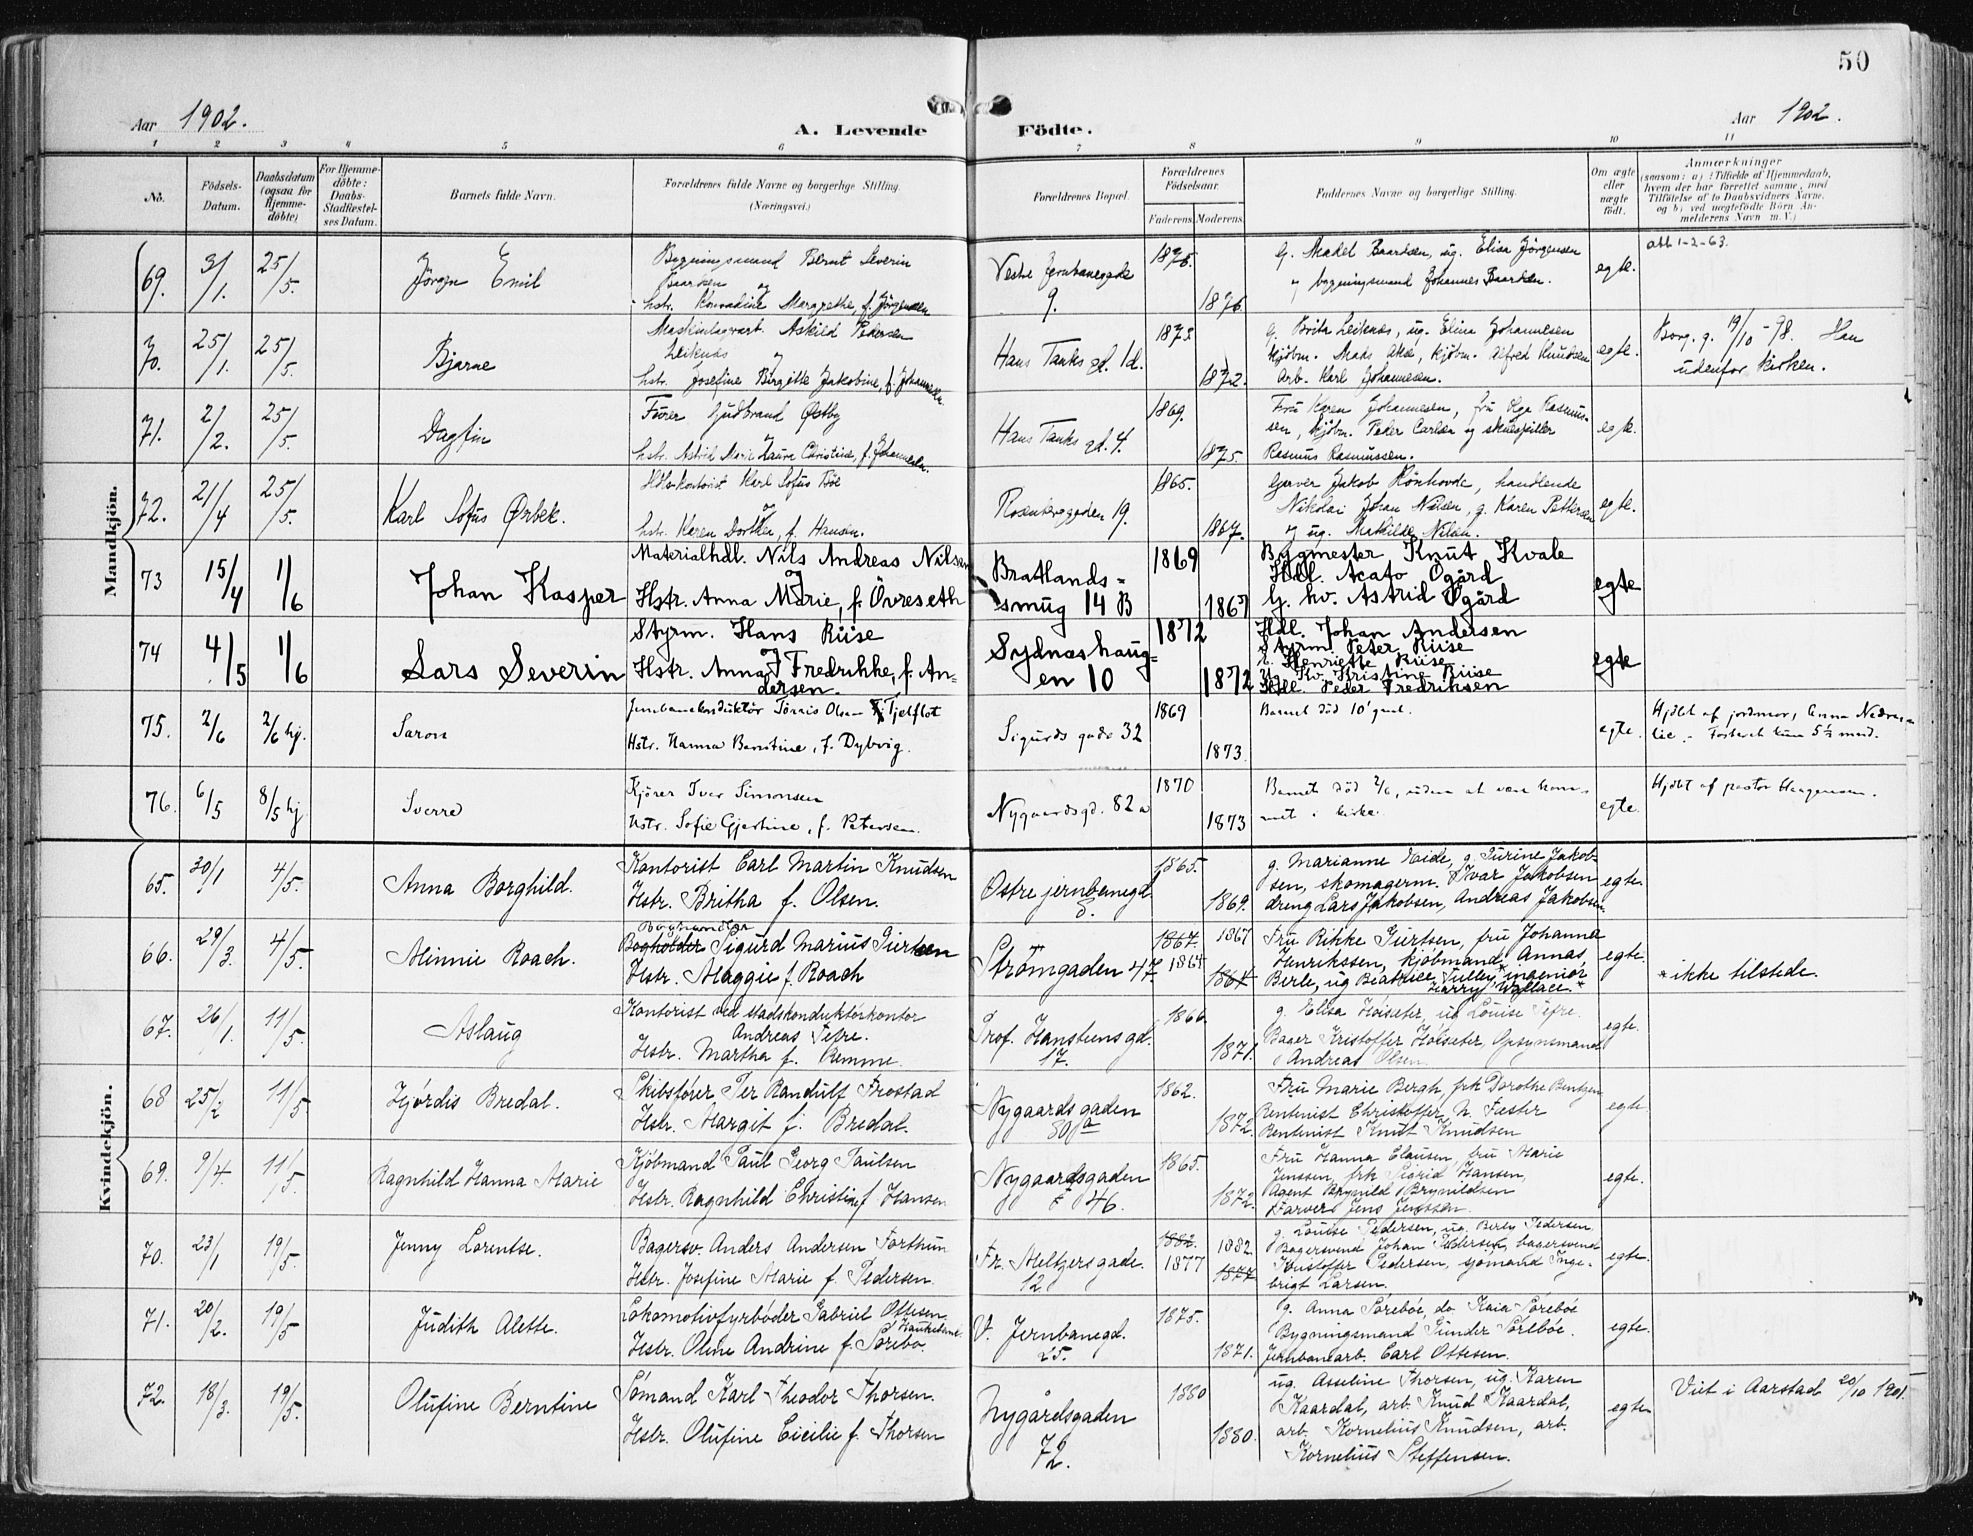 50
Aar 1902.
A. Levende Födte.
Aar 1902.
1 2 3 4 5 6 7 8 9 10 11
No.
Födsels-Datum.
Daabsdatum (ogsaa for Hjemme-döbte)
For Hjemme-döbte: Daabs-Stadfæstelses Datum.
Barnets fulde Navn.
Forældrenes fulde Navne og borgerlige Stilling. (Næringsvei.)
Forældrenes Bopæl.
Forældrenes Födselsaar.
Faderens. Moderens.
Faddernes Navne og borgerlige Stilling.
Om ægte eller uægte födt.
Anmærkninger
(saasom: a) i Tilfælde af Hjemmedaab,
hvem der har forrettet samme, med
Tilföielse af to Daabsvidners Navne,
og b) ved uægtefödte Börn An-
melderens Navn m. V.)
Mandkjön.
69. 3/1. 25/5. Jörgen Emil
Bygningsmand Bernt Severin
Baardsen og
hstr. Konradine Margrethe, f. Jörgensen
Vestre Jernbanegade
9.
1875. 1876.
g. Madel Baardsen, ug. Elisa Jörgensen
og bygningsmand Johannes Baardsen.
egte.
att 1-2-63.
70. 25/1. 25/5. Bjarne
Askild Pedersen
Leiknæs og
hstr. Josefine Birgitte Jakobine, f. Johannesen
Hans Tanks gd. 1d.
1873 1872.
g. Brita Leiknæs, ug. Elina Johannesen
kjöbm. Mads Aase, kjöbm. Alfred Knudsen
arb. Karl Johannesen.
egte.
Borg. g. 19/10 -98. Han
udenfor kirken.
71. 2/2. 25/5. Dagfin
Fører Gudbrand Østby
hstr. Astrid Marie Laura Christine, f. Johannesen.
Hans Tanks gd. 4.
1869. 1875.
Fru Karen Johannesen, fru Olga Rasmus-
sen, kjöbm. Peder Carlsen og skuespiller
Rasmus Rasmussen.
egte.
72. 21/4 25/5. Karl Sofus Ørbek.
Karl Sofus Böe
og
hstr. Karen Dorthea, f. Hansen.
Rosenberggaden 19.
1865. 1867.
Garver Jakob Rönhovde, handlende
Nikolai Johan Nilsen, g. Karen Pettersen
og ug. Mathilde Nilsen.
egte.
73 15/4 1/6 Johan Kasper
Materialhdl. Nils Andreas Nilsen
og
Hstr. Anna Marie, f. Övreseth
Bratlands-
smug 14 B
1869 1867
Bygmester Knut Kvale
Hdl. Acato Ögård
G. kv. Astrid Ögård
egte
74 4/5 1/6 Lars Severin
Styrm. Hans Riise
og
Hstr. Anna Fredrikke, f. An-
dersen.
Sydneshaug-
en 10
1872 1872
Hdl. Johan Andersen
Styrm. Peter Riise
Henriette Riise
Ug. Kv. Kristine Riise
Hdl. Peder Fredriksen
egte
75. 2/6 2/6 hj. Saron
Jernbanekonduktör Tönnis Olsen Tjelflot
Hstr. Hanna Berntine, f. Dybvig.
Sigurds gade 32
1869 1873.
Barnet död 10' gml.
egte.
Hjdbt af jordmor, Anna Nedre-
lie. - Fosteret kun 5½ mnd.
76. 6/5 8/5 hj Sverre
Kjörer Iver Simonsen
Hstr. Sofie Gjertine, f. Petersen.
Nygaardsgd. 82a
1870 1873
Barnet död 2/6, uden at være kom-
met i kirke.
egte.
Hjdbt af pastor Haagensen.
Kvindekjön.
65. 30/1 4/5. Anna Borghild.
Kontorist Carl Martin Knudsen
Hstr. Britha f. Olsen.
Østre jernbanegd.
1865. 1869.
g. Marianne Eide, g. Gurine Jakob-
sen, skomagerm. Ivar Jakobsen
dreng Lars Jakobsen, Andreas Jakobsen
egte.
66. 29/3. 4/5. Minnie Roach.
Boghandler
Bogholder Sigurd Marius Giertsen
Hstr. Maggie f. Roach
Strömgaden 47.
1867. 1864 1867 1864
Fru Rikke Giertsen, fru Johanna
Henrikssen, kjöbmand Annas
Berle, ug Beatrice Tulley* ingeniör
Harry Wallace.*
egte.
* ikke tilstede.
67. 26/1. 11/5. Aslaug
Kontorist ved stadskonduktörkontor
Andreas Tefre.
Hstr. Martha f. Remme.
Prof. Hansteens gd.
17.
1866. 1871.
g. Elisa Höiseter, ug Louise Tefre.
Bager Kristoffer Höiseter, Opsynsmand
Andreas Olsen
egte.
68 25/2 11/5 Hjördis Bredal.
Skibsförer Per Randulf Frostad
Hstr. Margit f. Bredal.
Nygaards gaden
80a
1862. 1872.
Fru Marie Bergh, frk Dorothe Bentzen
Rentenist Christoffer N. Fæster
Rentenist Knut Knudsen
egte
69. 9/4. 11/5. Ragnhild Hanna Marie
Kjöbmand Paul Georg Paulsen
Hstr. Ragnhild Christine f Hansen
Nygaardsgaden
46.
1865. 1872.
Fru Hanna Clausen, fru Marie
Jenssen, frk Sigrid Hansen,
Agent Brynild Brynildsen
Farver Jens Jenssen.
egte.
70. 23/1 19/5. Jenny Lorentse.
Bagersv. Anders Andersen Forthun
Hstr. Josefine Marie f. Pedersen.
Fr. Meltzersgade.
12
1882. 1877 1882. 1877
g. Louise Pedersen, ug. Berly Pedersen
Bagersvend Johan Pedersen, bagersvend
Kristoffer Pedersen, sjömand Inge-
brigt Larsen.
egte.
71. 20/2. 19/5 Judith Alette.
Lokomotivfyrböder Gabriel Ottesen
Hstr. Oline Andrine f. Sörebö
V. Jernbanegd.
25.
1875. 1871.
g. Anna Sörebøe, do Kaia Sörebøe
Bygningsmand Gunder Sörebøe.
Jernbanearb. Carl Ottesen.
egte.
72. 18/3. 19/5. Olufine Berntine
Sömand Karl Theodor Thorsen.
Hstr. Olufine Cicilie f. Thorsen
Nygårdsgaden
72.
1880 1880.
ug. Asseline Thorsen, ug. Karen
Kaardal, arb. Knud Kaardal,
arb. Kornelius Knudsen, arb.
Kornelius Steffensen.
egte
Viet i Aarstad 20/10 1901.